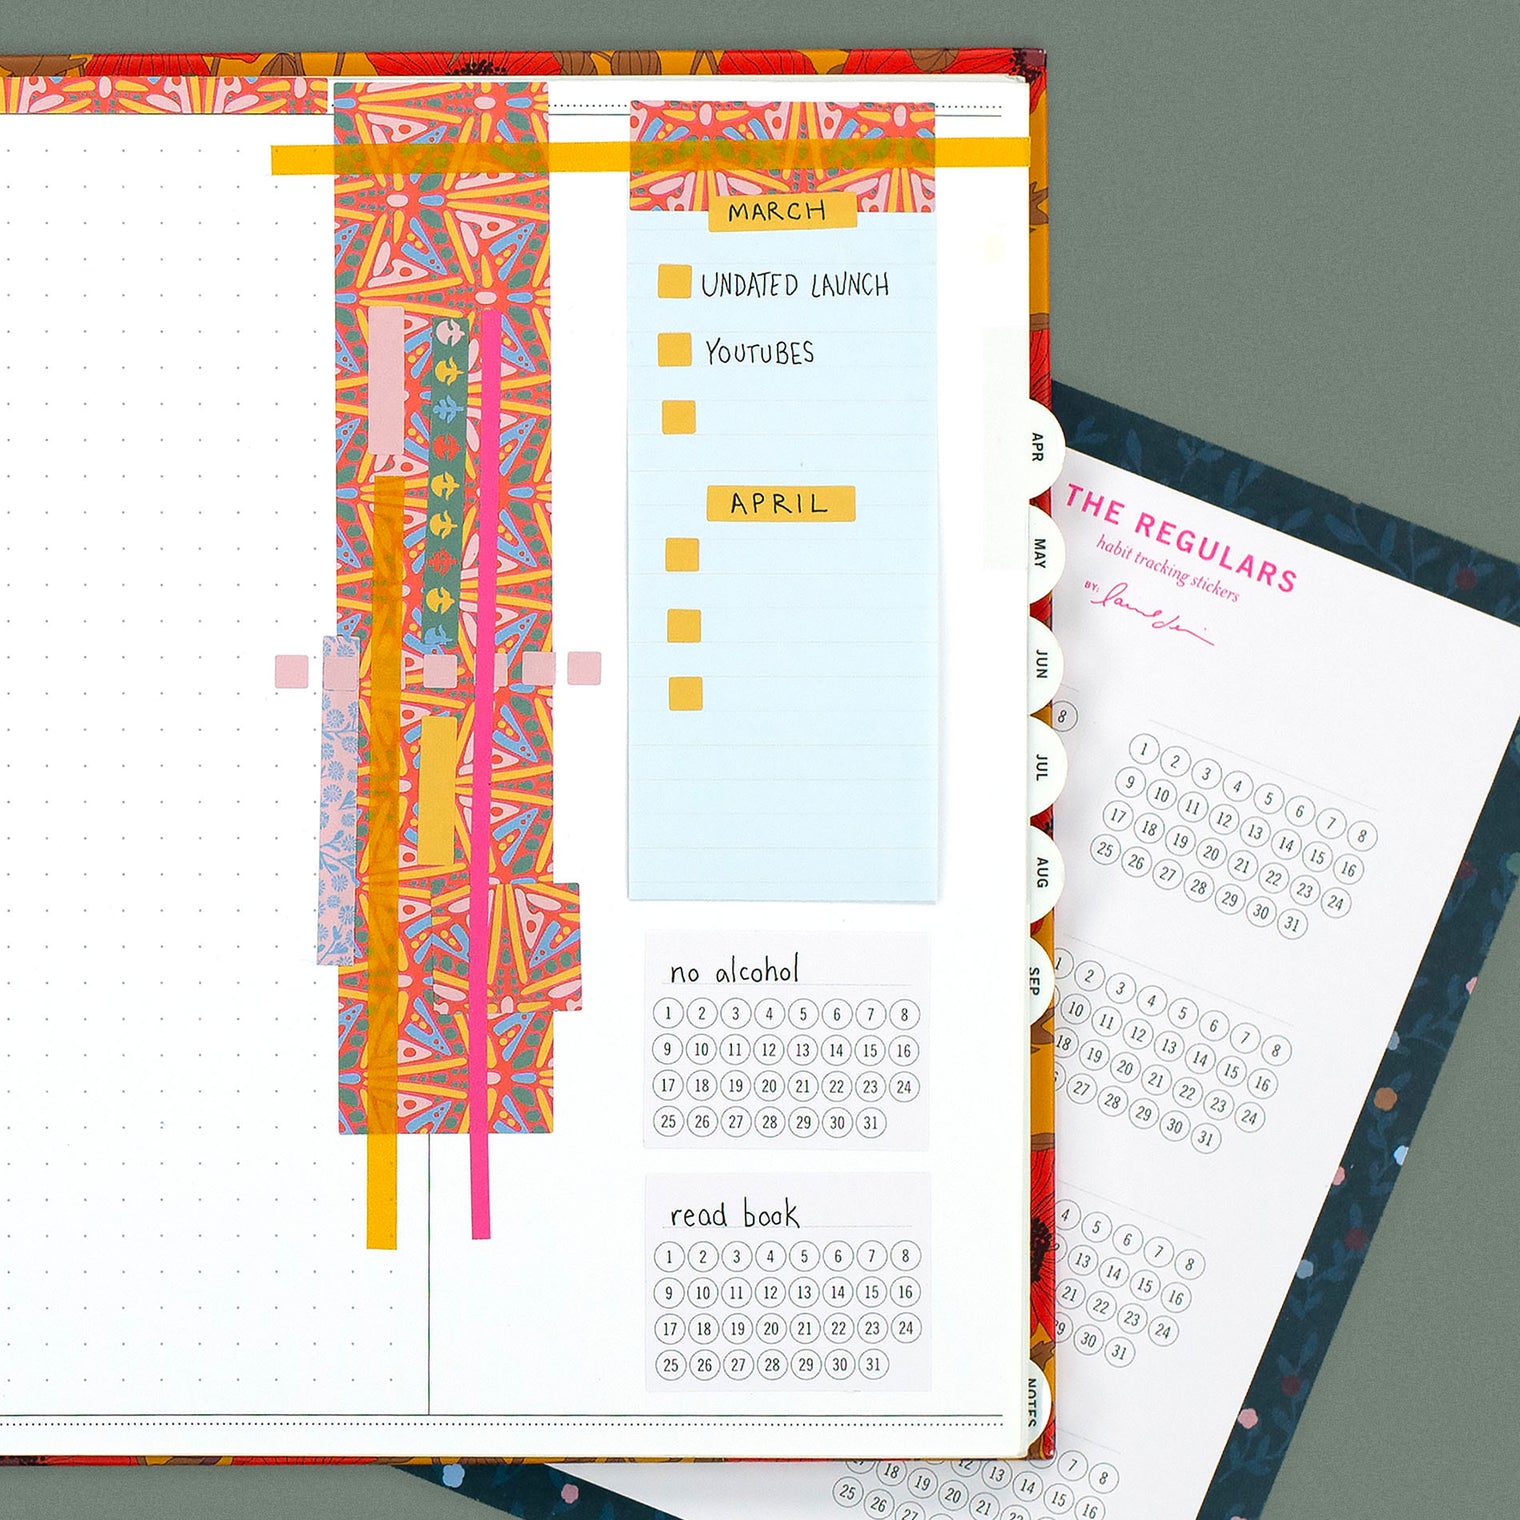 MARCH
UNDATED LAUNCH
YOUTUBES
APRIL
no alcohol
1 2 3 4 5 6 7 8
9 10 11 12 13 14 15 16
17 18 19 20 21 22 23 24
25 26 27 28 29 30 31
read book
1 2 3 4 5 6 7 8
9 10 11 12 13 14 15 16
17 18 19 20 21 22 23 24
25 26 27 28 29 30 31
APR
MAY
JUN
JUL
AUG
SEP
NOTES
THE REGULARS
habit tracking stickers
BY:
8
1 2 3 4 5 6 7 8
9 10 11 12 13 14 15 16
17 18 19 20 21 22 23 24
25 26 27 28 29 30 31
1 2 3 4 5 6 7 8
10 11 12 13 14 15 16
18 19 20 21 22 23 24
27 28 29 30 31
4 5 6 7 8
13 14 15 16
21 22 23 24
29 30 31
7 8
12 13 14 15 16
18 19 20 21 22
25 26 27